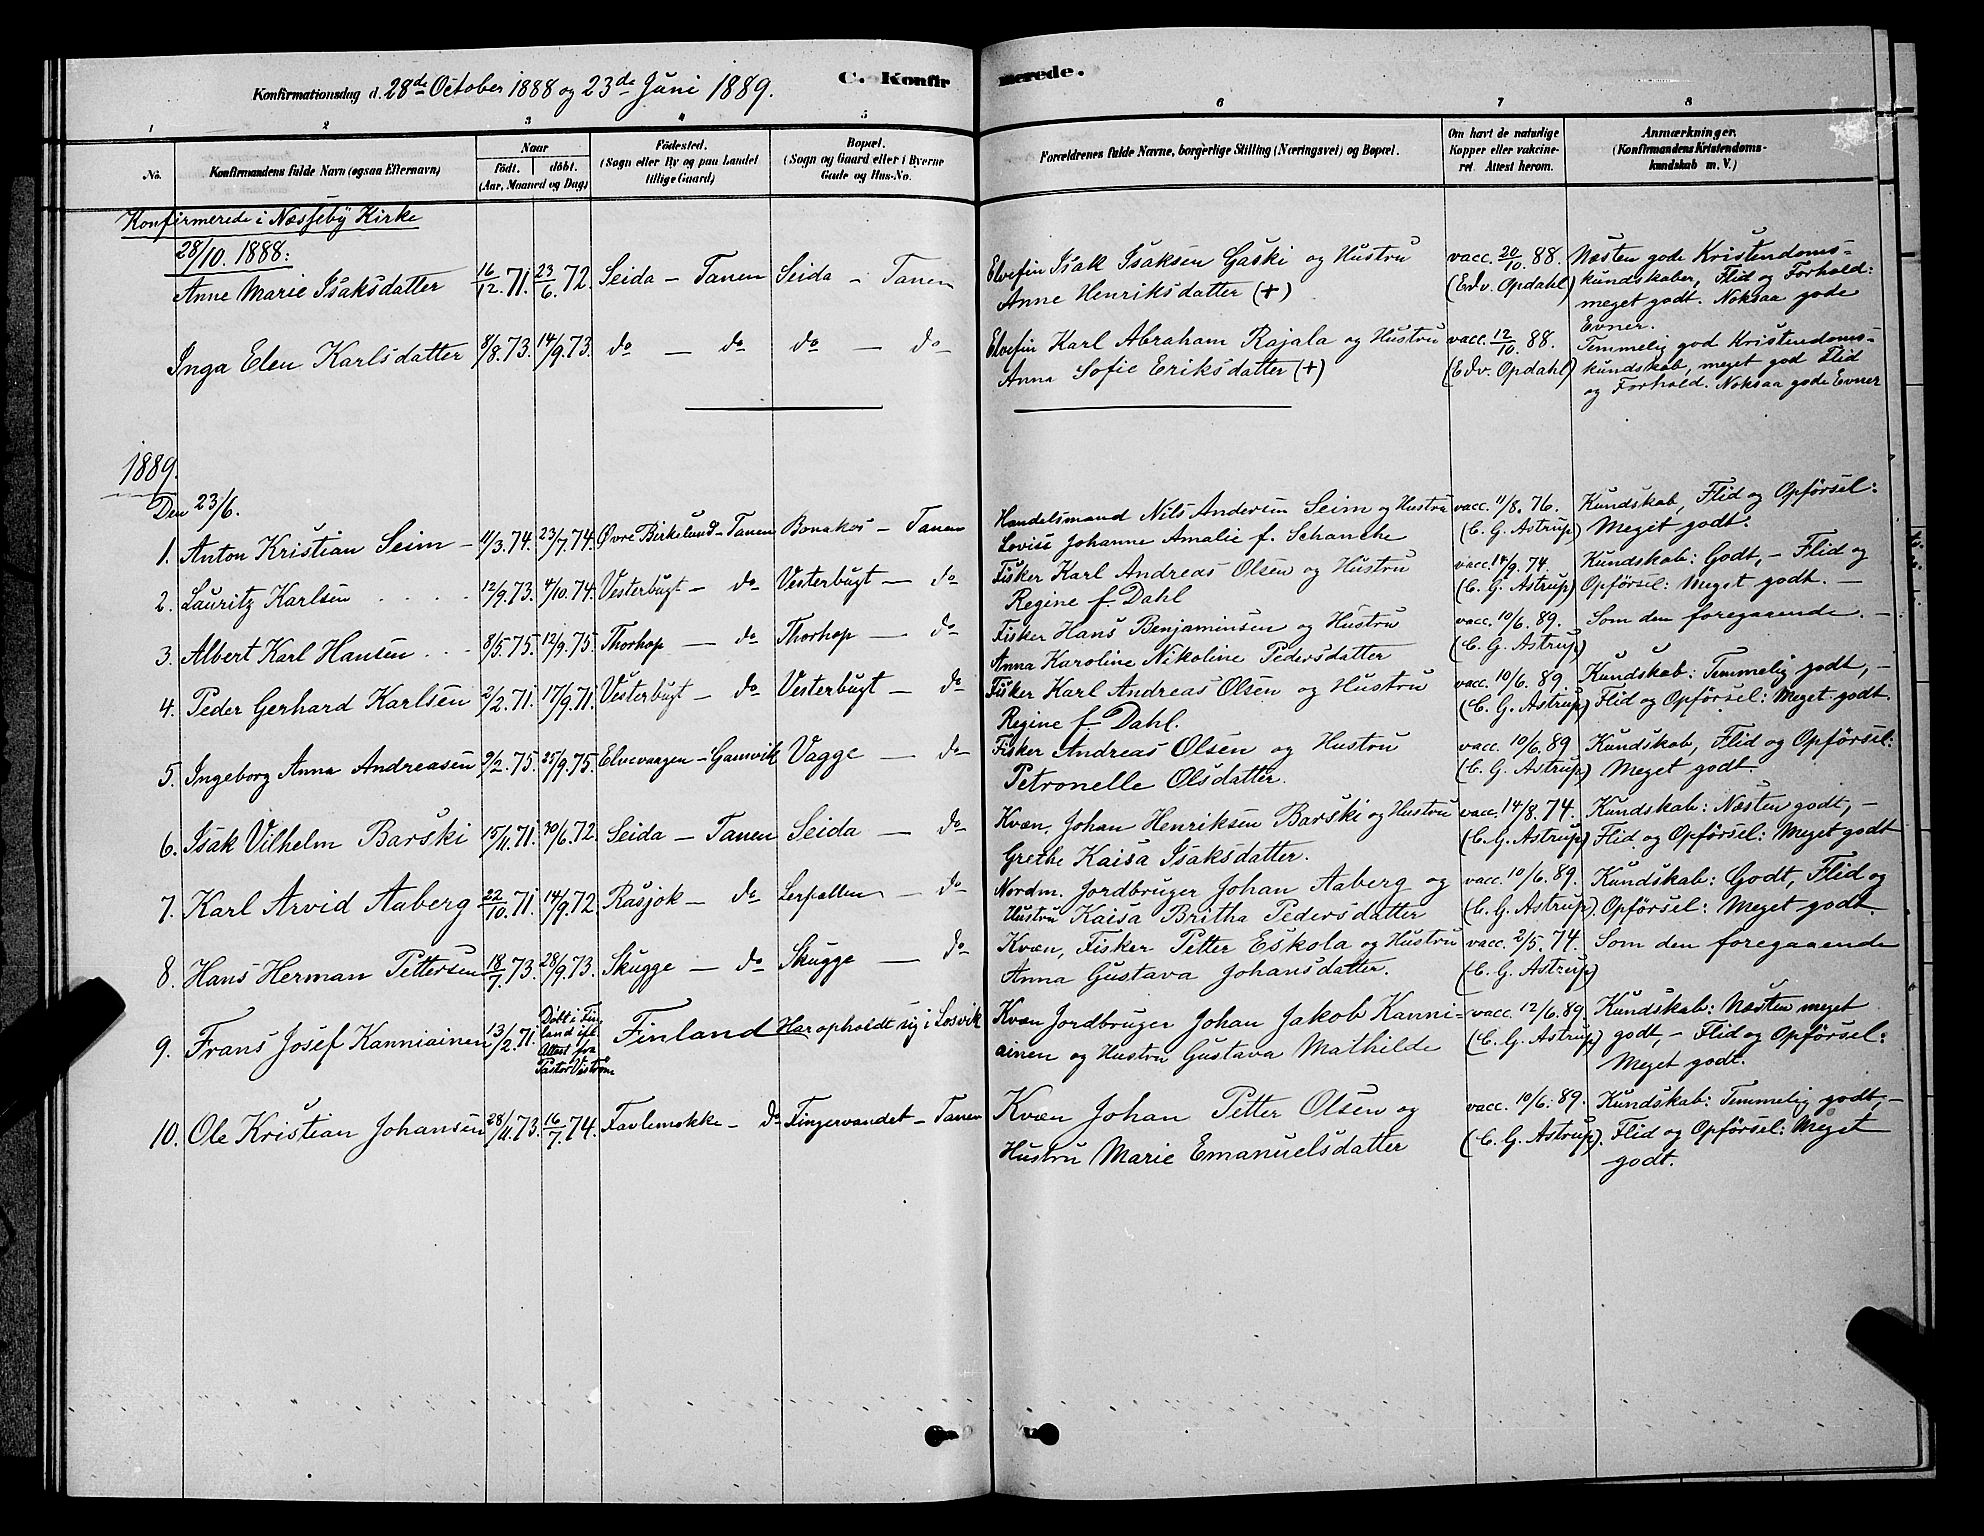 Konfirmationsdag d. 28de October 1888 og 23de Juni 1889.
C. Konfirmerede.
1 2 3 4 5 6 7 8
No.
Konfirmandens fulde Navn (ogsaa Efternavn)
Naar
født. døbt.
(Aar, Maaned og Dag)
Fødested.
(Sogn eller By og paa Landet
tillige Gaard)
Bopæl.
(Sogn og Gaard eller i Byerne
Gade og Hus-No.
Forældrenes fulde Navne, borgerlige Stilling (Næringsvei) og Bopæl.
Om havt de naturlige
Kopper eller vakcine-
ret. Attest herom.
Anmærkninger.
(Konfirmandens Kristendoms-
kundskab m. V.)
Konfirmerede i Næsseby Kirke
28/10. 1888:
Anne Marie Isaksdatter 16/12.71. 23/6.72. Seida - Tanen Seida - Tanen
Elvefin Isak Isaksen Gaski og Hustru
Anne Henriksdatter (+)
vacc. 20/10.88.
(Edv. Opdahl)
Næsten gode Kristendoms-
kundskaber, Flid og Forhold:
meget godt. Noksaa gode
Evner.
Inga Elen Karlsdatter 8/8.73. 14/9.73. do - do do - do
Elvefin Karl Abraham Rajala og Hustru
Anna Sofie Eriksdatter (+)
vacc. 12/10.88.
(Edv. Opdahl)
Temmelig god Kristendoms-
kundskab, meget god Flid
og Forhold. Noksaa gode Evner
1889.
Den 23/6.
1. Anton Kristian Seim - 11/3.74. 23/7.74. Øvre Birkelund - Tanen Bonakas - Tanen
Handelsmand Nils Andersen Seim og Hustru
Lovise Johanne Amalie f. Schanche
vacc. 11/8.76.
(C. G. Astrup)
Kundskab, Flid og Opførsel:
Meget godt.
2. Lauritz Karlsen 12/9.73. 4/10.74. Vesterbugt - do Vesterbugt - do
Fisker Karl Andreas Olsen og Hustru
Regine f. Dahl
vacc. 14/9.74.
(C. G. Astrup)
Kundskab: Godt, - Flid og
Opførsel: Meget godt. -
3. Albert Karl Hansen 8/5.75. 12/9.75. Thorhop - do Thorhop - do
Fisker Hans Benjaminsen og Hustru
Anna Karoline Nikoline Pedersdatter
vacc. 10/6.89.
(C. G. Astrup)
Som den foregaaende. -
4. Peder Gerhard Karlsen 2/2.71. 17/9.71. Vesterbugt - do Vesterbugt - do
Fisker Karl Andreas Olsen og Hustru
Regine f. Dahl.
vacc. 10/6.89
(C. G. Astrup)
Kundskab: Temmelig godt, -
Flid og Opførsel: Meget godt.
5. Ingeborg Anna Andreasen 9/2.75. 25/9.75. Elvevaagen - Gamvik Vagge - do
Fisker Andreas Olsen og Hustru
Petronelle Olsdatter.
vacc. 10/6.89
(C. G. Astrup)
Kundskab, Flid og Opførsel:
Meget godt.
6. Isak Vilhelm Barski 15/11.71. 30/6.72. Seida - Tanen Seida - do
Kvæn, Johan Henriksen Barski og Hustru
Grethe Kaisa Isaksdatter.
vacc. 14/8.74.
(C. G. Astrup)
Kundskab: Næsten godt, -
Flid og Opførsel: Meget godt
7. Karl Arvid Aaberg 22/10.71. 14/9.72. Rasjok - do Lerpollen - do
Nordm. Jordbruger Johan Aaberg og
Hustru Kaisa Britha Pedersdatter
vacc. 10/6.89.
(C. G. Astrup).
Kundskab: Godt, Flid og
Opførsel: Meget godt.
8. Hans Herman Pettersen 18/7.73. 28/9.73. Skugge - do Skugge - do
Kvæn, Fisker Petter Eskola og Hustru
Anna Gustava Johansdatter.
vacc. 2/5.74.
(C. G. Astrup)
Som den foregaaende
9. Frans Josef Kanniainen 13/2.71. Døbt i Fin-
land ifl.
Attest fra
Pastor
Finland Har opholdt sig i Losvik
Kvæn Jordbruger Johan Jakob Kanni-
ainen og Hustru Gustava Mathilde
vacc. 12/6.89.
(C. G. Astrup)
Kundskab: Næsten meget
godt, - Flid og Opførsel:
Meget godt.
10. Ole Kristian Johansen 28/11.73. 16/7.74. Favlemokke - do Fingervandet - Tanen
Kvæn Johan Petter Olsen og
Hustru Marie Emanuelsdatter
vacc. 10/6.89.
(C. G. Astrup).
Kundskab: Temmelig godt, -
Flid og Opførsel: Meget
godt.